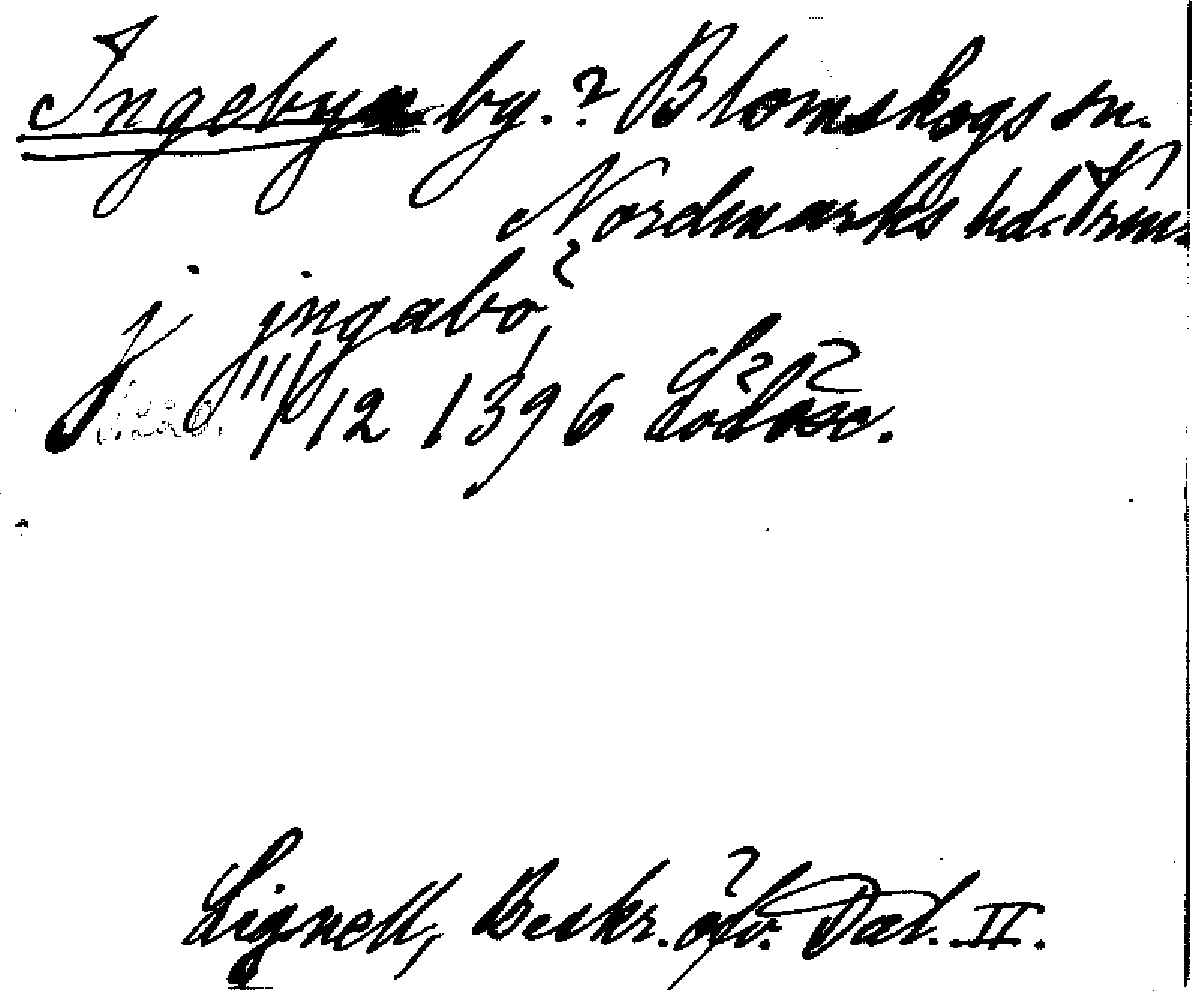 Ingebyn by.? Blomskogs sn.
Nordmarks hd. Vrm.
j jngabö
11/12 1396 Lödöse.
Lignell, Beskr. öfv. Dal. II.